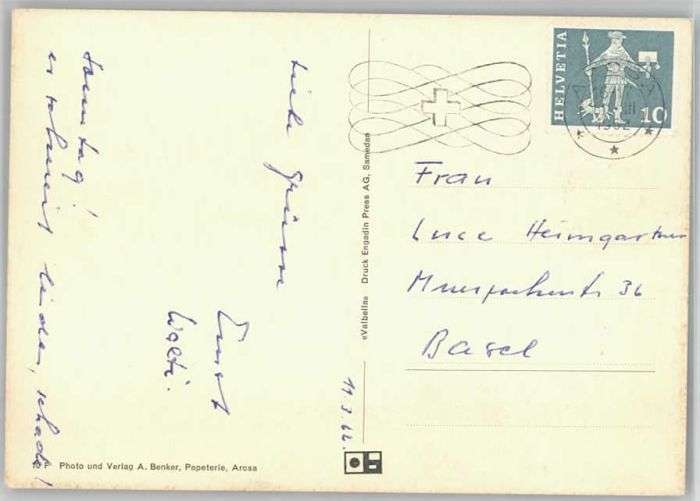 Sonntag!
es schneit leider, schade!
Liebe Grüsse
Ernst
Walti.
11.3.62.
HELVETIA
10
Frau
Luce Heimgartner
36
Basel
«Valbella» Druck Engadin Press AG, Samedan
Photo und Verlag A. Benker, Papeterie, Arosa